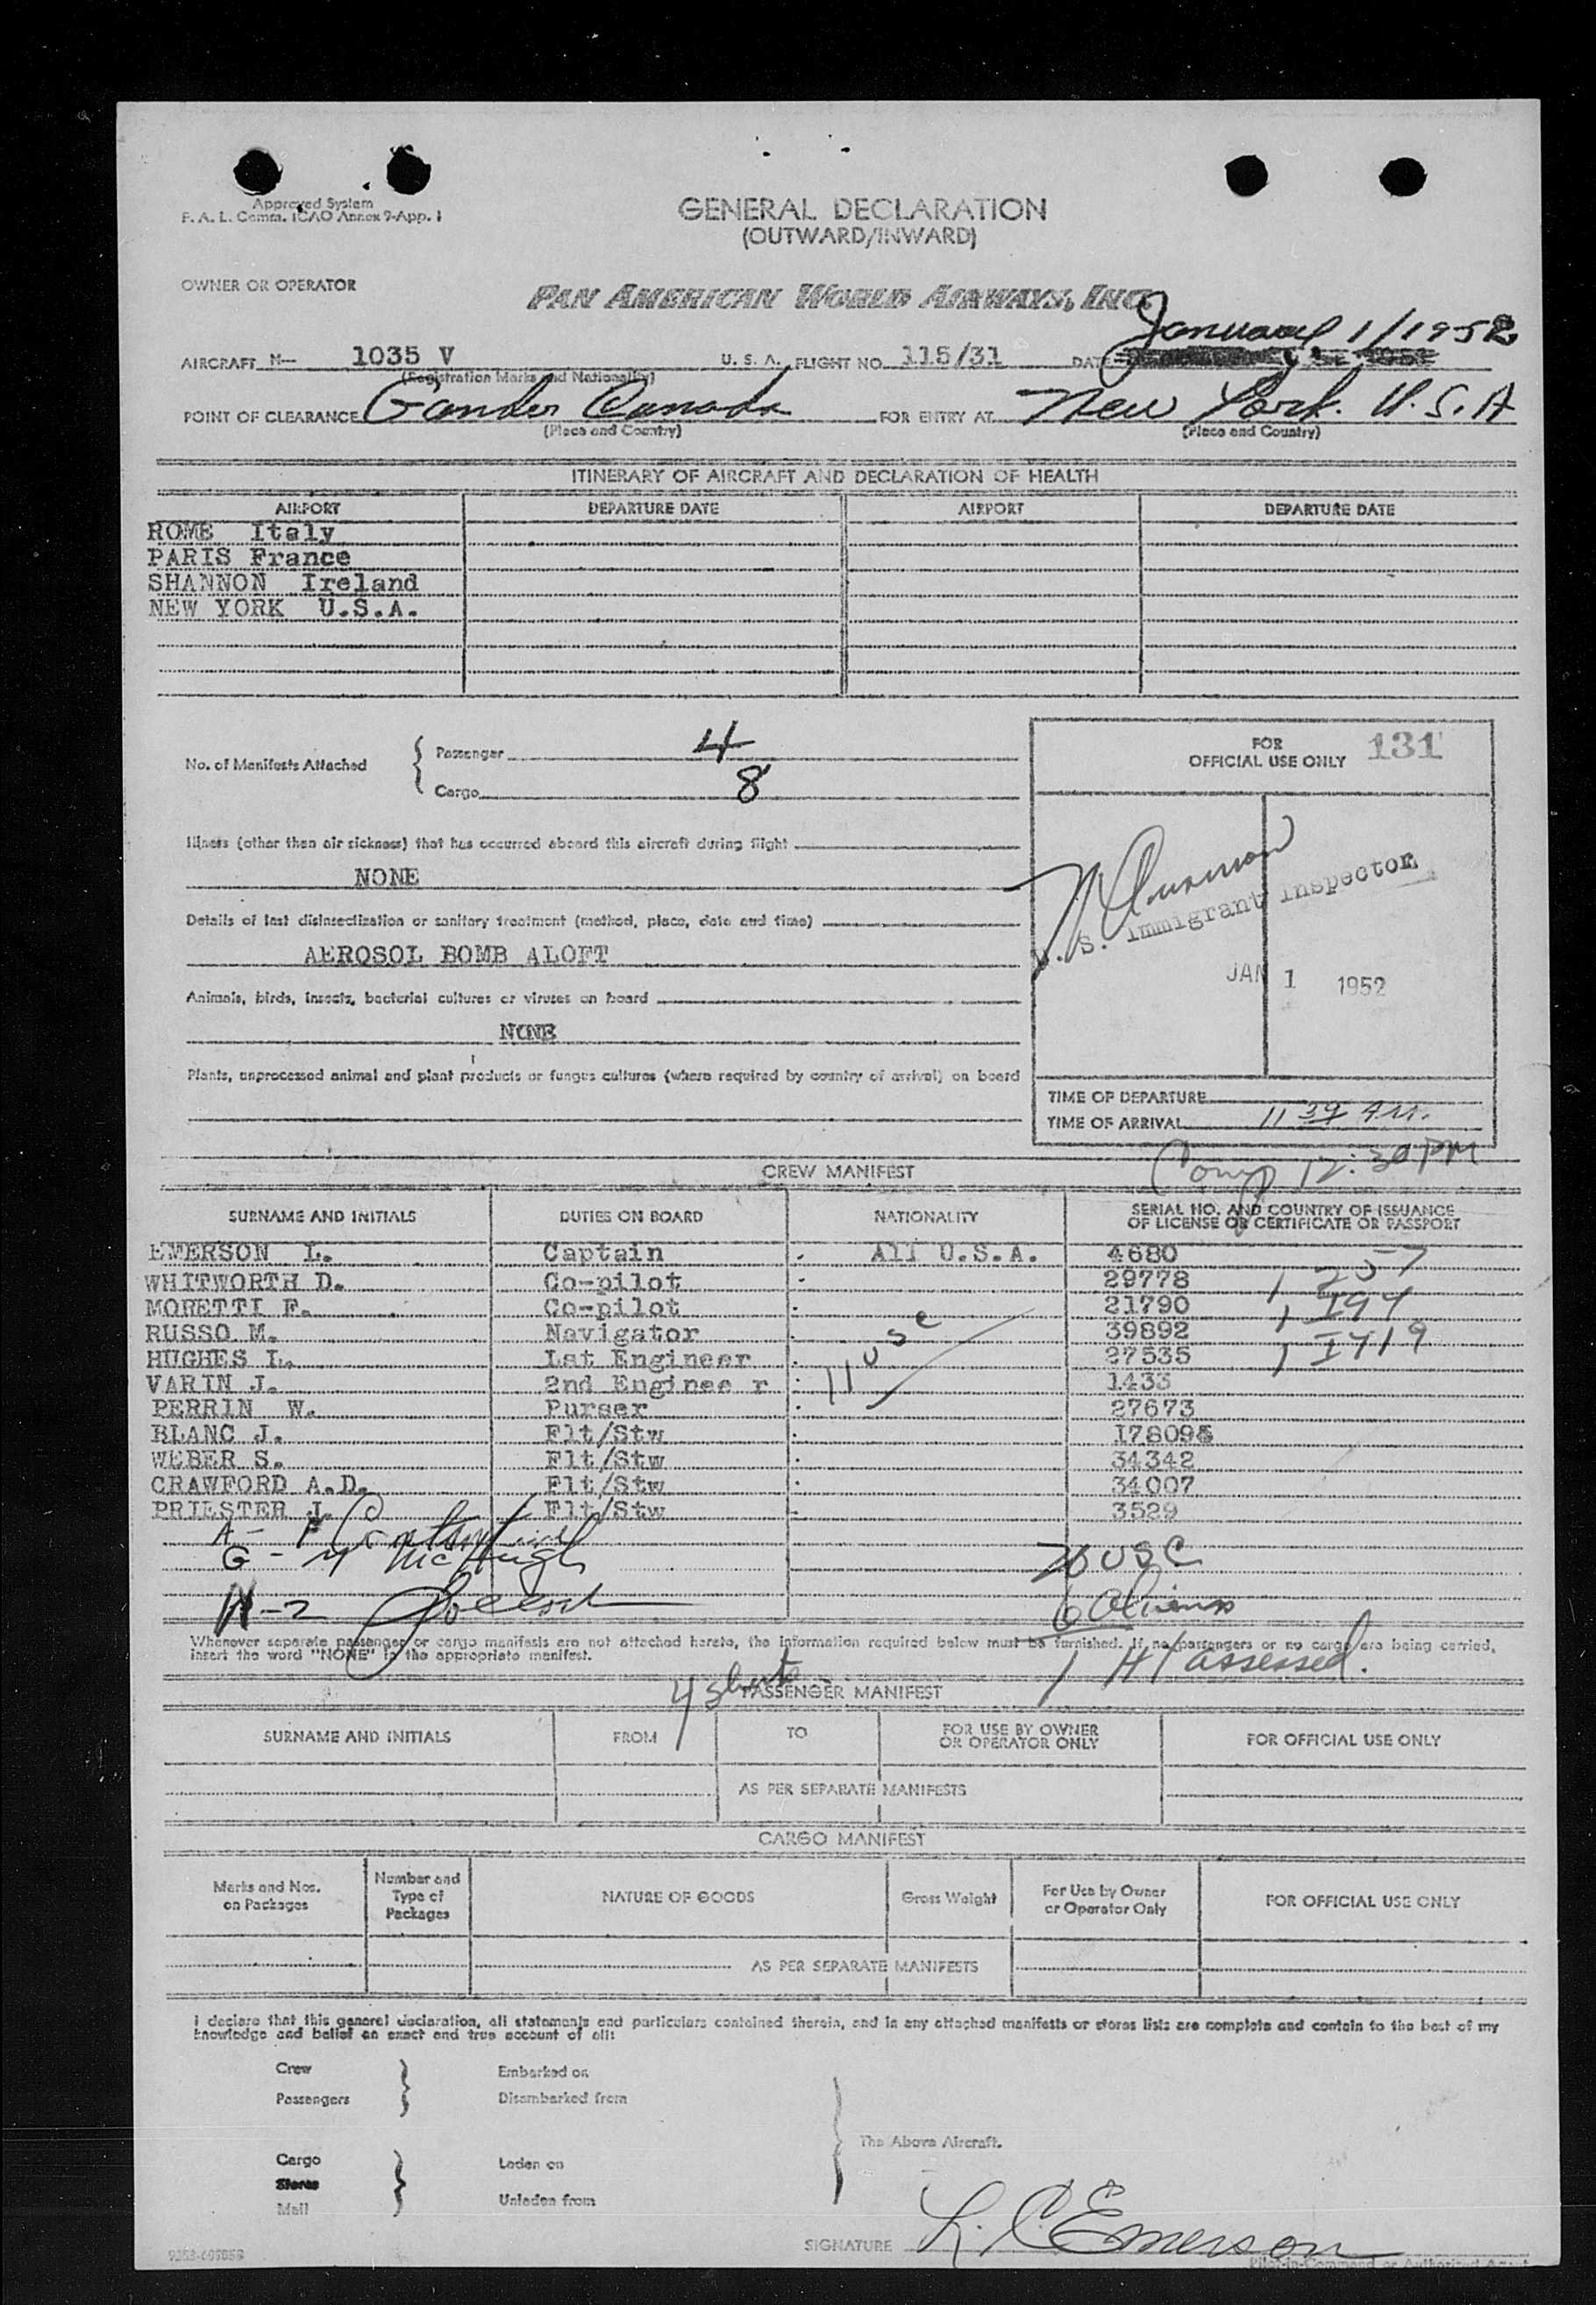 Approved System
F. A. L. Comm. ICAO Annex 9-App. 1
GENERAL DECLARATION
(OUTWARD/INWARD)
OWNER OR OPERATOR
PAN AMERICAN WORLD AIRWAYS, INC.
January 1/1952
AIRCRAFT N— 1035 V U. S. A. FLIGHT NO. 115/31 DATE
(Registration Marks and Nationality)
POINT OF CLEARANCE Gander Canada FOR ENTRY AT New York. U.S.A
(Place and Country) (Place and Country)
ITINERARY OF AIRCRAFT AND DECLARATION OF HEALTH
AIRPORT DEPARTURE DATE AIRPORT DEPARTURE DATE
ROME Italy
PARIS France
SHANNON Ireland
NEW YORK U.S.A.
No. of Manifests Attached
Passenger 4
Cargo 8
FOR
OFFICIAL USE ONLY 131
Illness (other than air sickness) that has occurred aboard this aircraft during flight
NONE
Details of last disinsectization or sanitary treatment (method, place, date and time)
AEROSOL BOMB ALOFT
Animals, birds, insects, bacterial cultures or viruses on board
NONE
Plants, unprocessed animal and plant products or fungus cultures (where required by country of arrival) on board
U.S. Immigrant Inspector
JAN 1 1952
TIME OF DEPARTURE
TIME OF ARRIVAL 11 39 A.M.
Comp 12:30 PM
CREW MANIFEST
SURNAME AND INITIALS DUTIES ON BOARD NATIONALITY SERIAL NO. AND COUNTRY OF ISSUANCE
OF LICENSE OR CERTIFICATE OR PASSPORT
EMERSON L. Captain All U.S.A. 4680
WHITWORTH D. Co-pilot 29778 1 257
MORETTI F. Co-pilot 21790 1 I94
RUSSO M. Navigator 39892 1 I419
HUGHES L. 1st Engineer 11 USC 27535
VARIN J. 2nd Enginee r 1433
PERRIN W. Purser 27673
BLANC J. Flt/Stw 178095
WEBER S. Flt/Stw 34342
CRAWFORD A.D. Flt/Stw 34007
PRIESTER J. Flt/Stw 3529
A-
G - McHugh 26 USC
N-2 6 Aliens
Whenever separate passenger or cargo manifests are not attached hereto, the information required below must be furnished. If no passengers or no cargo are being carried,
insert the word "NONE" in the appropriate manifest.
1 HT assessed.
4 sheets
PASSENGER MANIFEST
SURNAME AND INITIALS FROM TO FOR USE BY OWNER
OR OPERATOR ONLY FOR OFFICIAL USE ONLY
AS PER SEPARATE MANIFESTS
CARGO MANIFEST
Marks and Nos.
on Packages
Number and
Type of
Packages
NATURE OF GOODS
Gross Weight
For Use by Owner
or Operator Only
FOR OFFICIAL USE ONLY
AS PER SEPARATE MANIFESTS
I declare that this general declaration, all statements and particulars contained therein, and in any attached manifests or stores lists are complete and contain to the best of my
knowledge and belief an exact and true account of all:
Crew Embarked on
Passengers Disembarked from
The Above Aircraft.
Cargo Laden on
Stores
Mail Unladen from
SIGNATURE L. C. Emerson
Pilot-in-Command or Authorized Agent